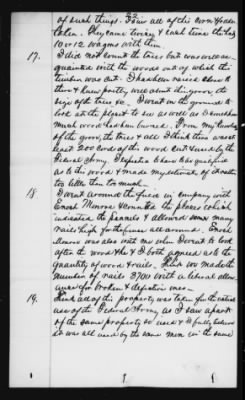 32
of such things. I saw all of this corn & fodder
taken. They came twice & each time they had
10 or 12 wagons with them.
17. I did not count the trees but was well ac-
quainted with the woods out of which the
timber was cut. I had been raised close to
there & knew pretty well about the grove, the
size of the trees &c. I went on the ground to
look at the place to see as well as I could how
much wood had been burned. From my knowledge
of the grove, the trees & all I think there was at
least 200 cords of this wood cut & used by the
Federal Army. I
as to the wood & made my estimate
too little than too much.
18. I went around the field in company with
Enoch Monroe & counted the places which
indicated the pannels & allowed some many
rails high for the fence all around. Enoch
Monroe was also with me when I went to look
after the wood & he & I both agreed as to the
quantity of wood & rails. I think we made the
number of rails 3700 with a liberal allow-
ance for broken & defective ones.
19. I think all of this property was taken for the actual
use of the Federal Army as I saw a part
of the same property so used & I fully believe
it was all used by the same men in the same